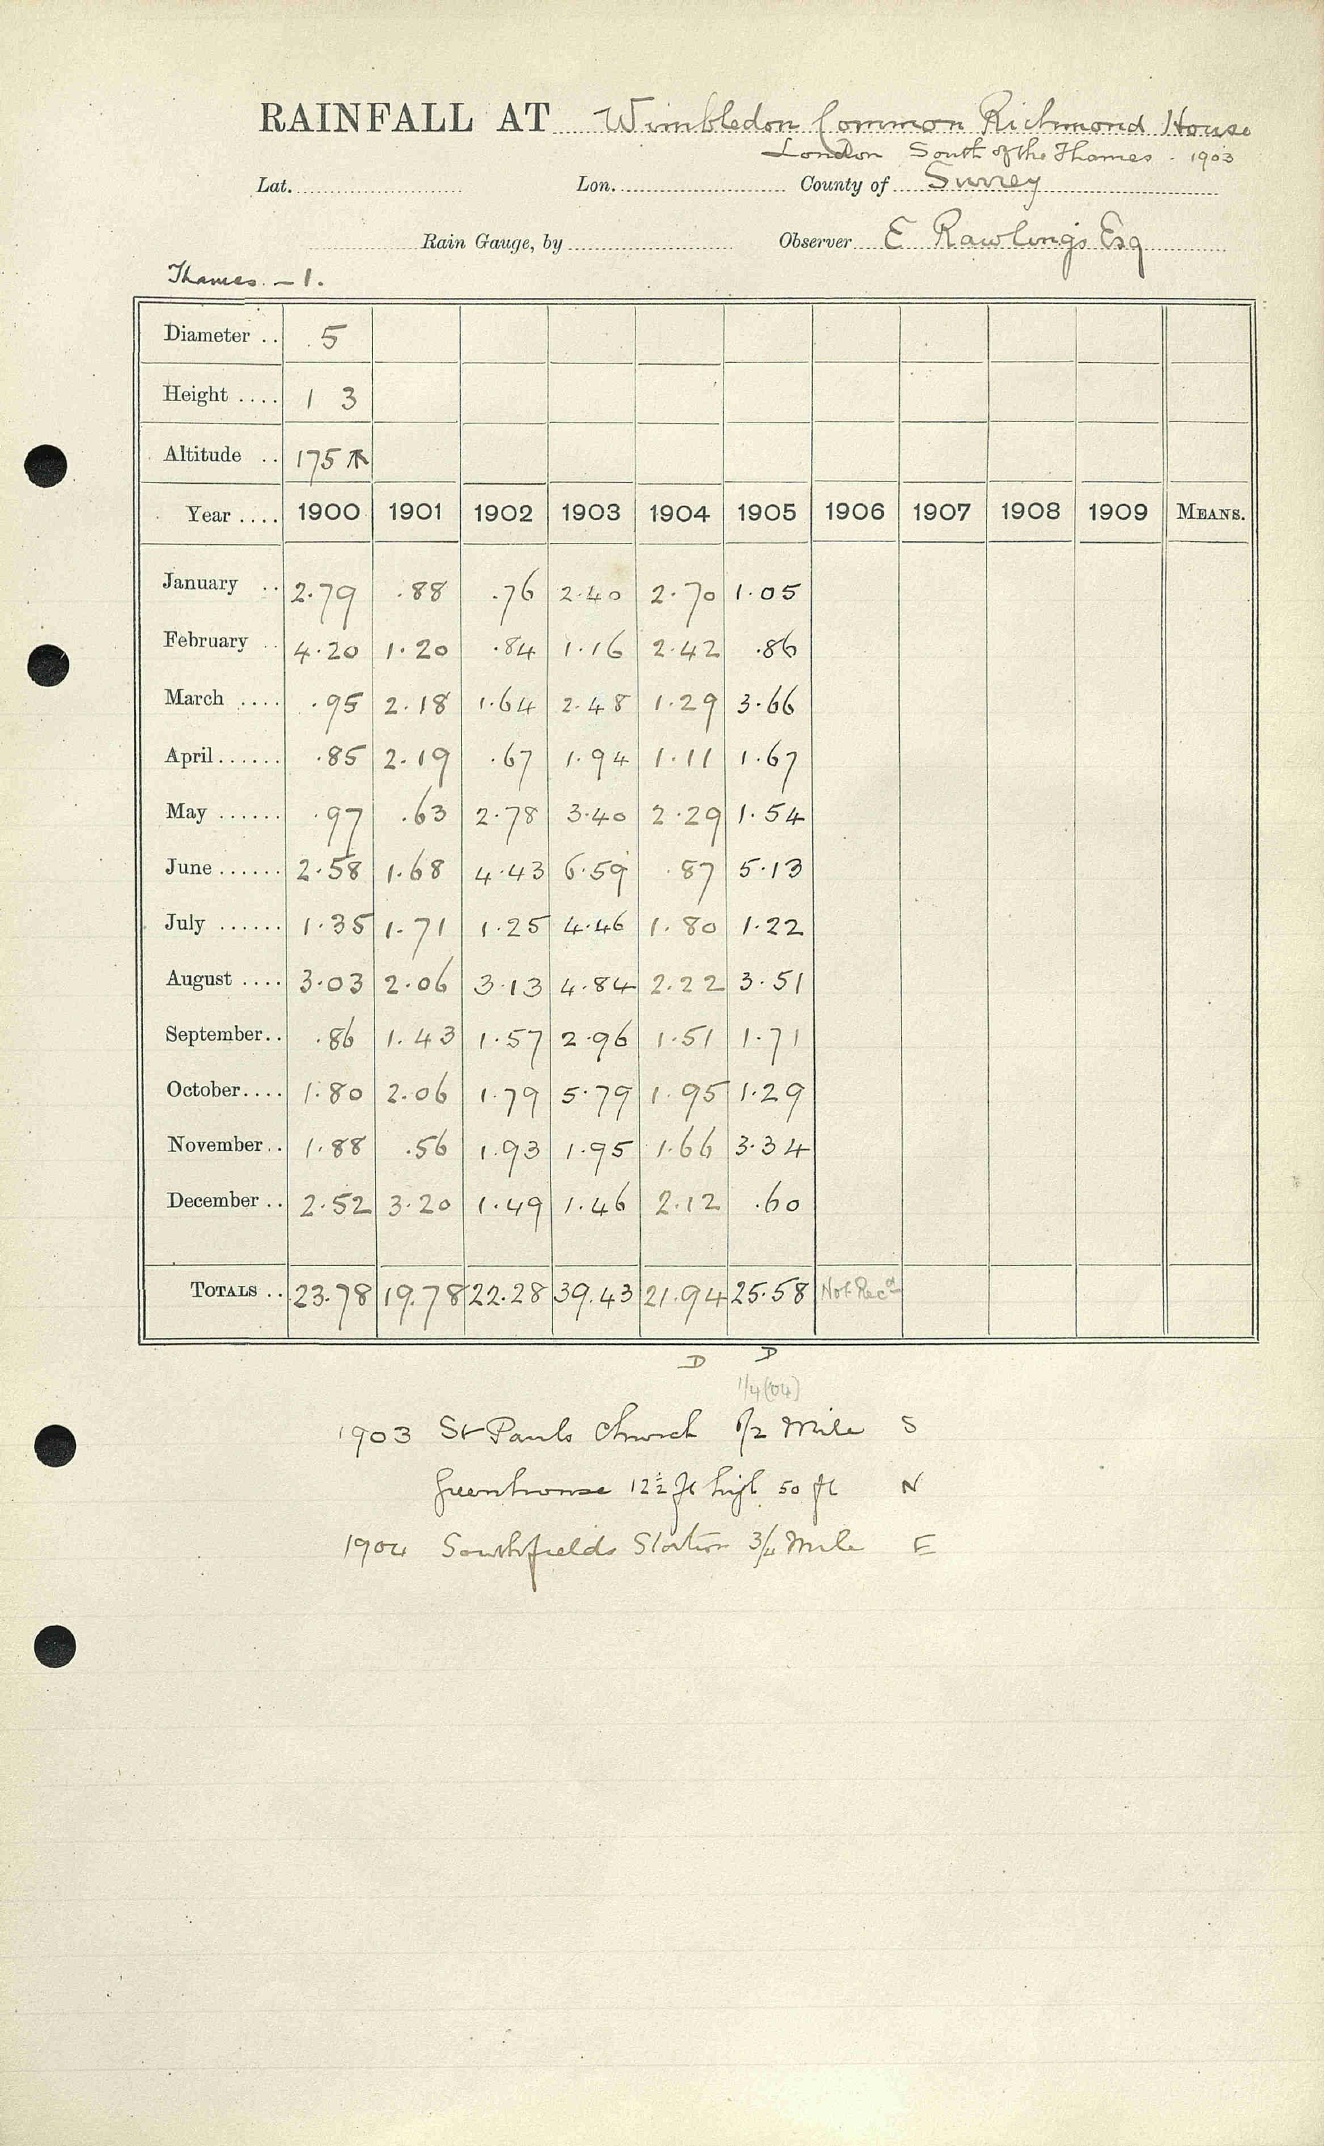 RAINFALL AT Wimbledon Common Richmond House
London South of the Thames. 1903
Lat. Lon. County of Surrey
Rain Gauge, by Observer E Rawlings Esq
Thames - 1.
Diameter .. 5
Height .... 1 3
Altitude .. 175
Year .... 1900 1901 1902 1903 1904 1905 1906 1907 1908 1909 MEANS.
January .. 2.79 .88 .76 2.40 2.70 1.05
February .. 4.20 1.20 .84 1.16 2.42 .86
March .... .95 2.18 1.64 2.48 1.29 3.66
April...... .85 2.19 .67 1.94 1.11 1.67
May ...... .97 .63 2.78 3.40 2.29 1.54
June ...... 2.58 1.68 4.43 6.59 .87 5.13
July ...... 1.35 1.71 1.25 4.46 1.80 1.22
August .... 3.03 2.06 3.13 4.84 2.22 3.51
September.. .86 1.43 1.57 2.96 1.51 1.71
October.... 1.80 2.06 1.79 5.79 1.95 1.29
November.. 1.88 .56 1.93 1.95 1.66 3.34
December .. 2.52 3.20 1.49 1.46 2.12 .60
TOTALS .. 23.78 19.78 22.28 39.43 21.94 25.58 Not Recd
D D
1/4 (04)
1903 St Pauls Church 1/2 Mile S
Greenhouse 12½ ft high 50 ft N
1904 Southfields Station 3/4 Mile E